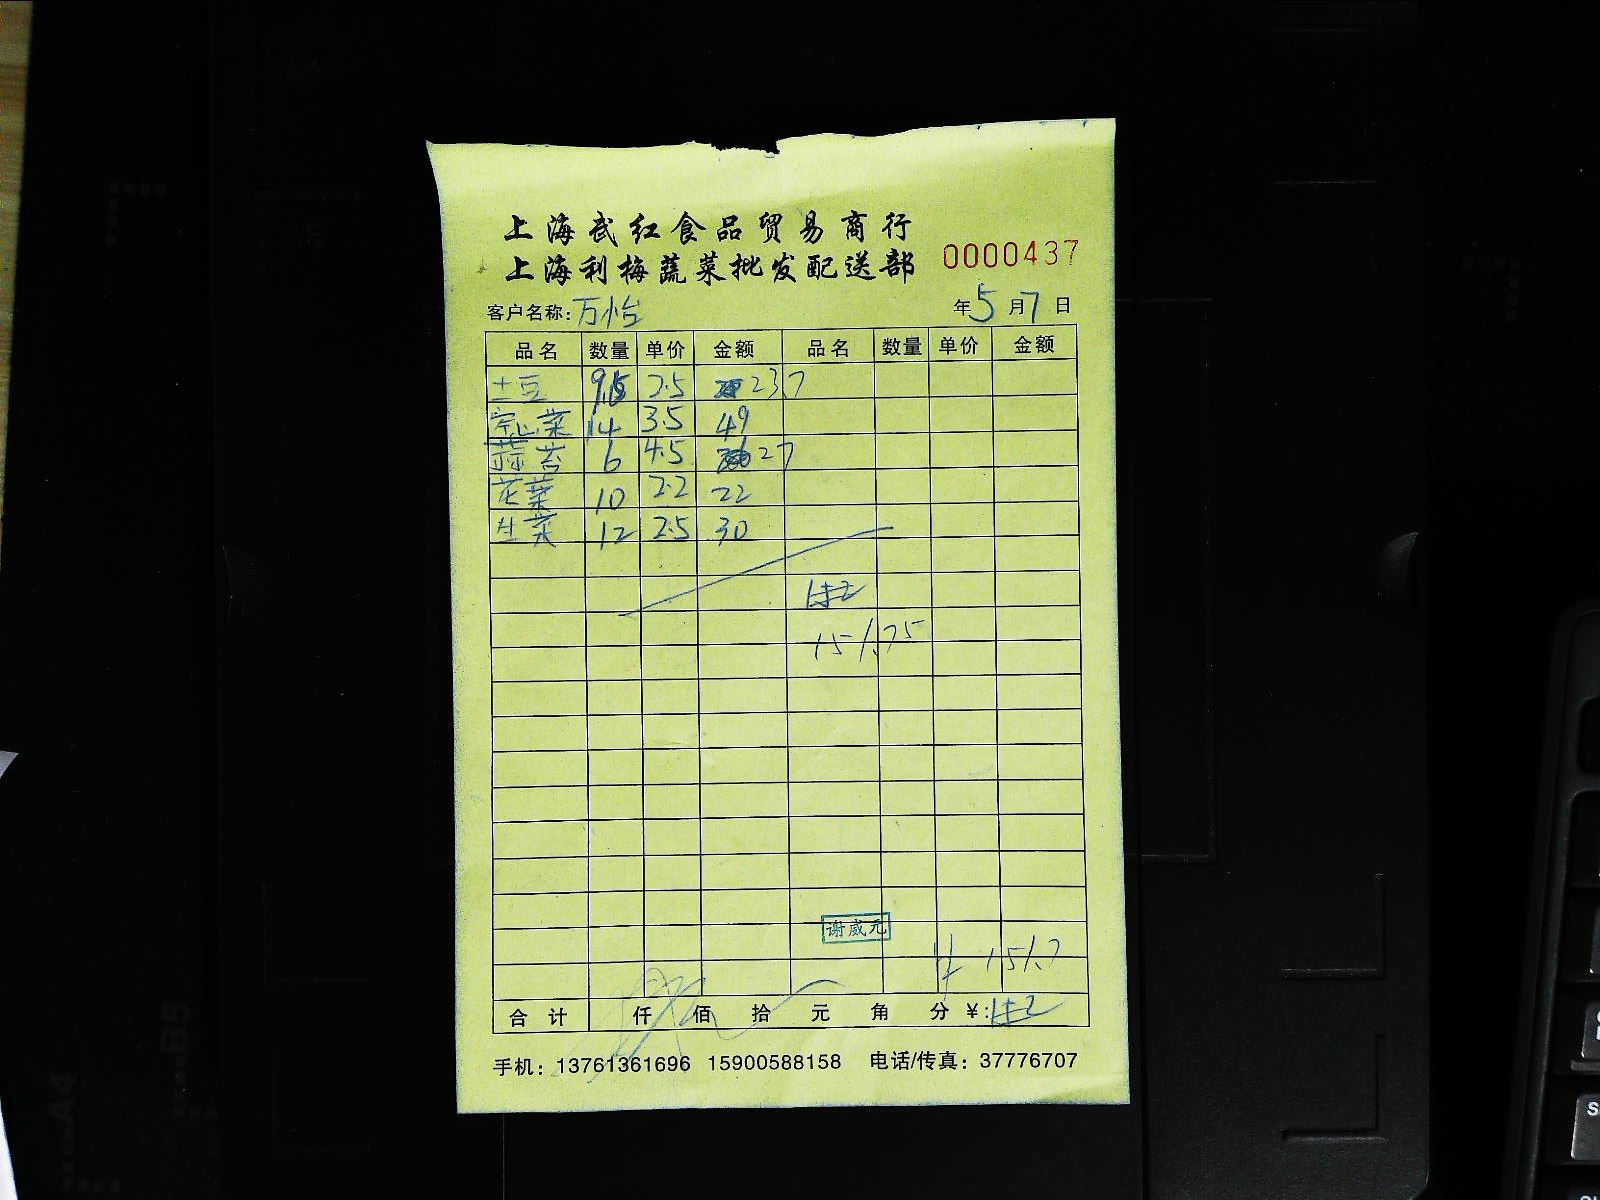 上海武红食品贸易商行
上海利梅蔬菜批发配送部 0000437
客户名称: 万怡 年 5 月 7 日
品名 数量 单价 金额 品名 数量 单价 金额
土豆 9.5 2.5 23.7
14 3.5 49
蒜苔 6 4.5 27
花菜 10 2.2 22
生菜 12 2.5 30
151.75
谢威元
151.7
合计 仟 佰 拾 元 角 分 ¥:
手机: 13761361696 15900588158 电话/传真: 37776707
B5
A4